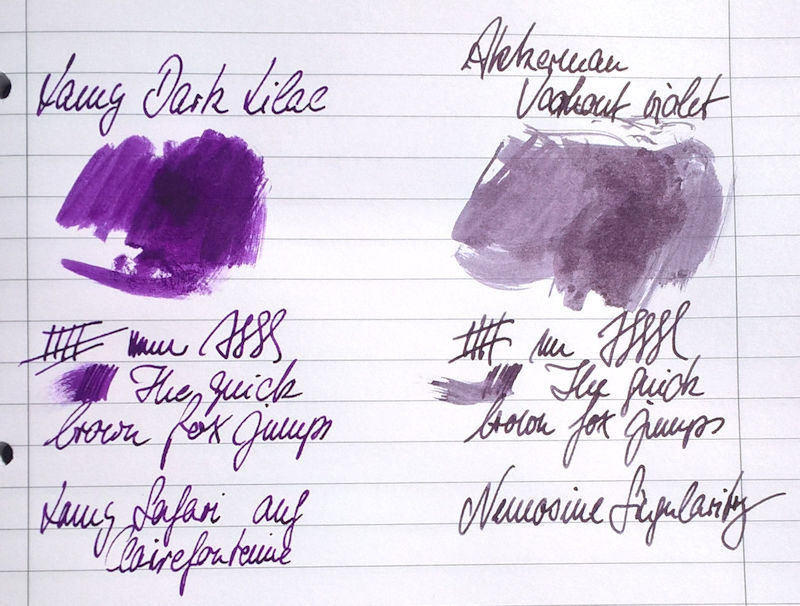 Lamy Dark Lilac
The quick
brown fox jumps
Lamy Safari auf
Clairefontaine
Akkerman
Voorhout violet
The quick
brown fox jumps
Nemosine Singularity